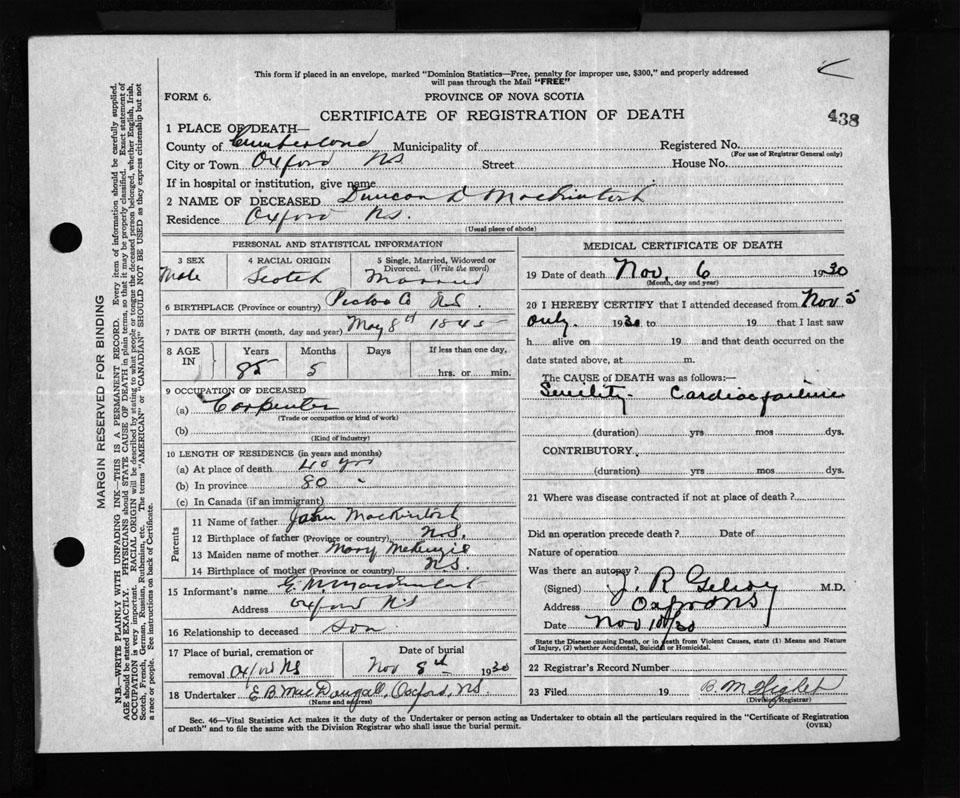 This form if placed in an envelope, marked "Dominion Statistics—Free, penalty for improper use, $300," and properly addressed
will pass through the Mail "FREE"
FORM 6. PROVINCE OF NOVA SCOTIA
CERTIFICATE OF REGISTRATION OF DEATH 438
1 PLACE OF DEATH—
County of Cumberland Municipality of Registered No.
(For use of Registrar General only)
City or Town Oxford NS Street House No.
If in hospital or institution, give name
2 NAME OF DECEASED Duncan D MacKintosh
Residence Oxford NS.
(Usual place of abode)
PERSONAL AND STATISTICAL INFORMATION
3 SEX 4 RACIAL ORIGIN 5 Single, Married, Widowed or
Divorced. (Write the word)
Male Scotch Married
6 BIRTHPLACE (Province or country) Pictou Co N.S.
7 DATE OF BIRTH (month, day and year) May 8th 1845
8 AGE IN Years Months Days If less than one day,
85 5 hrs. or min.
9 OCCUPATION OF DECEASED
(a) Carpenter
(Trade or occupation or kind of work)
(b)
(Kind of industry)
10 LENGTH OF RESIDENCE (in years and months)
(a) At place of death 40 yrs
(b) In province 80 "
(c) In Canada (if an immigrant)
Parents
11 Name of father John MacKintosh
12 Birthplace of father (Province or country) N.S.
13 Maiden name of mother Mary McKenzie
14 Birthplace of mother (Province or country) N.S.
15 Informant's name
Address Oxford NS
16 Relationship to deceased Son
17 Place of burial, cremation or Date of burial
removal Oxford NS Nov 8th 1930
18 Undertaker E B MacDougall, Oxford, NS.
(Name and address)
MEDICAL CERTIFICATE OF DEATH
19 Date of death Nov. 6 1930
(Month, day and year)
20 I HEREBY CERTIFY that I attended deceased from Nov 5
only. 1930 to 19 that I last saw
h alive on 19 and that death occurred on the
date stated above, at m.
The CAUSE of DEATH was as follows:—
Senility. Cardiac failure
(duration) yrs mos dys.
CONTRIBUTORY.
(duration) yrs mos dys.
21 Where was disease contracted if not at place of death ?
Did an operation precede death ? Date of
Nature of operation
Was there an autopsy ?
(Signed) J. R M.D.
Address Oxford NS
Date Nov 10/30
State the Disease causing Death, or in death from Violent Causes, state (1) Means and Nature
of Injury, (2) whether Accidental, Suicidal or Homicidal.
22 Registrar's Record Number
23 Filed 19 B. M
(Division Registrar)
Sec. 46—Vital Statistics Act makes it the duty of the Undertaker or person acting as Undertaker to obtain all the particulars required in the "Certificate of Registration
of Death" and to file the same with the Division Registrar who shall issue the burial permit. (OVER)
MARGIN RESERVED FOR BINDING
N.B.—WRITE PLAINLY WITH UNFADING INK—THIS IS A PERMANENT RECORD. Every item of information should be carefully supplied.
AGE should be stated EXACTLY. PHYSICIANS should STATE CAUSE OF DEATH in plain terms, so that it may be properly classified. Exact statement of
OCCUPATION is very important. RACIAL ORIGIN will be described by stating to what people or tongue the deceased person belonged, whether English, Irish,
Scotch, French, German, Russian, Ruthenian, etc. The terms "AMERICAN" or "CANADIAN" SHOULD NOT BE USED as they express citizenship but not
a race or people. See instructions on back of Certificate.